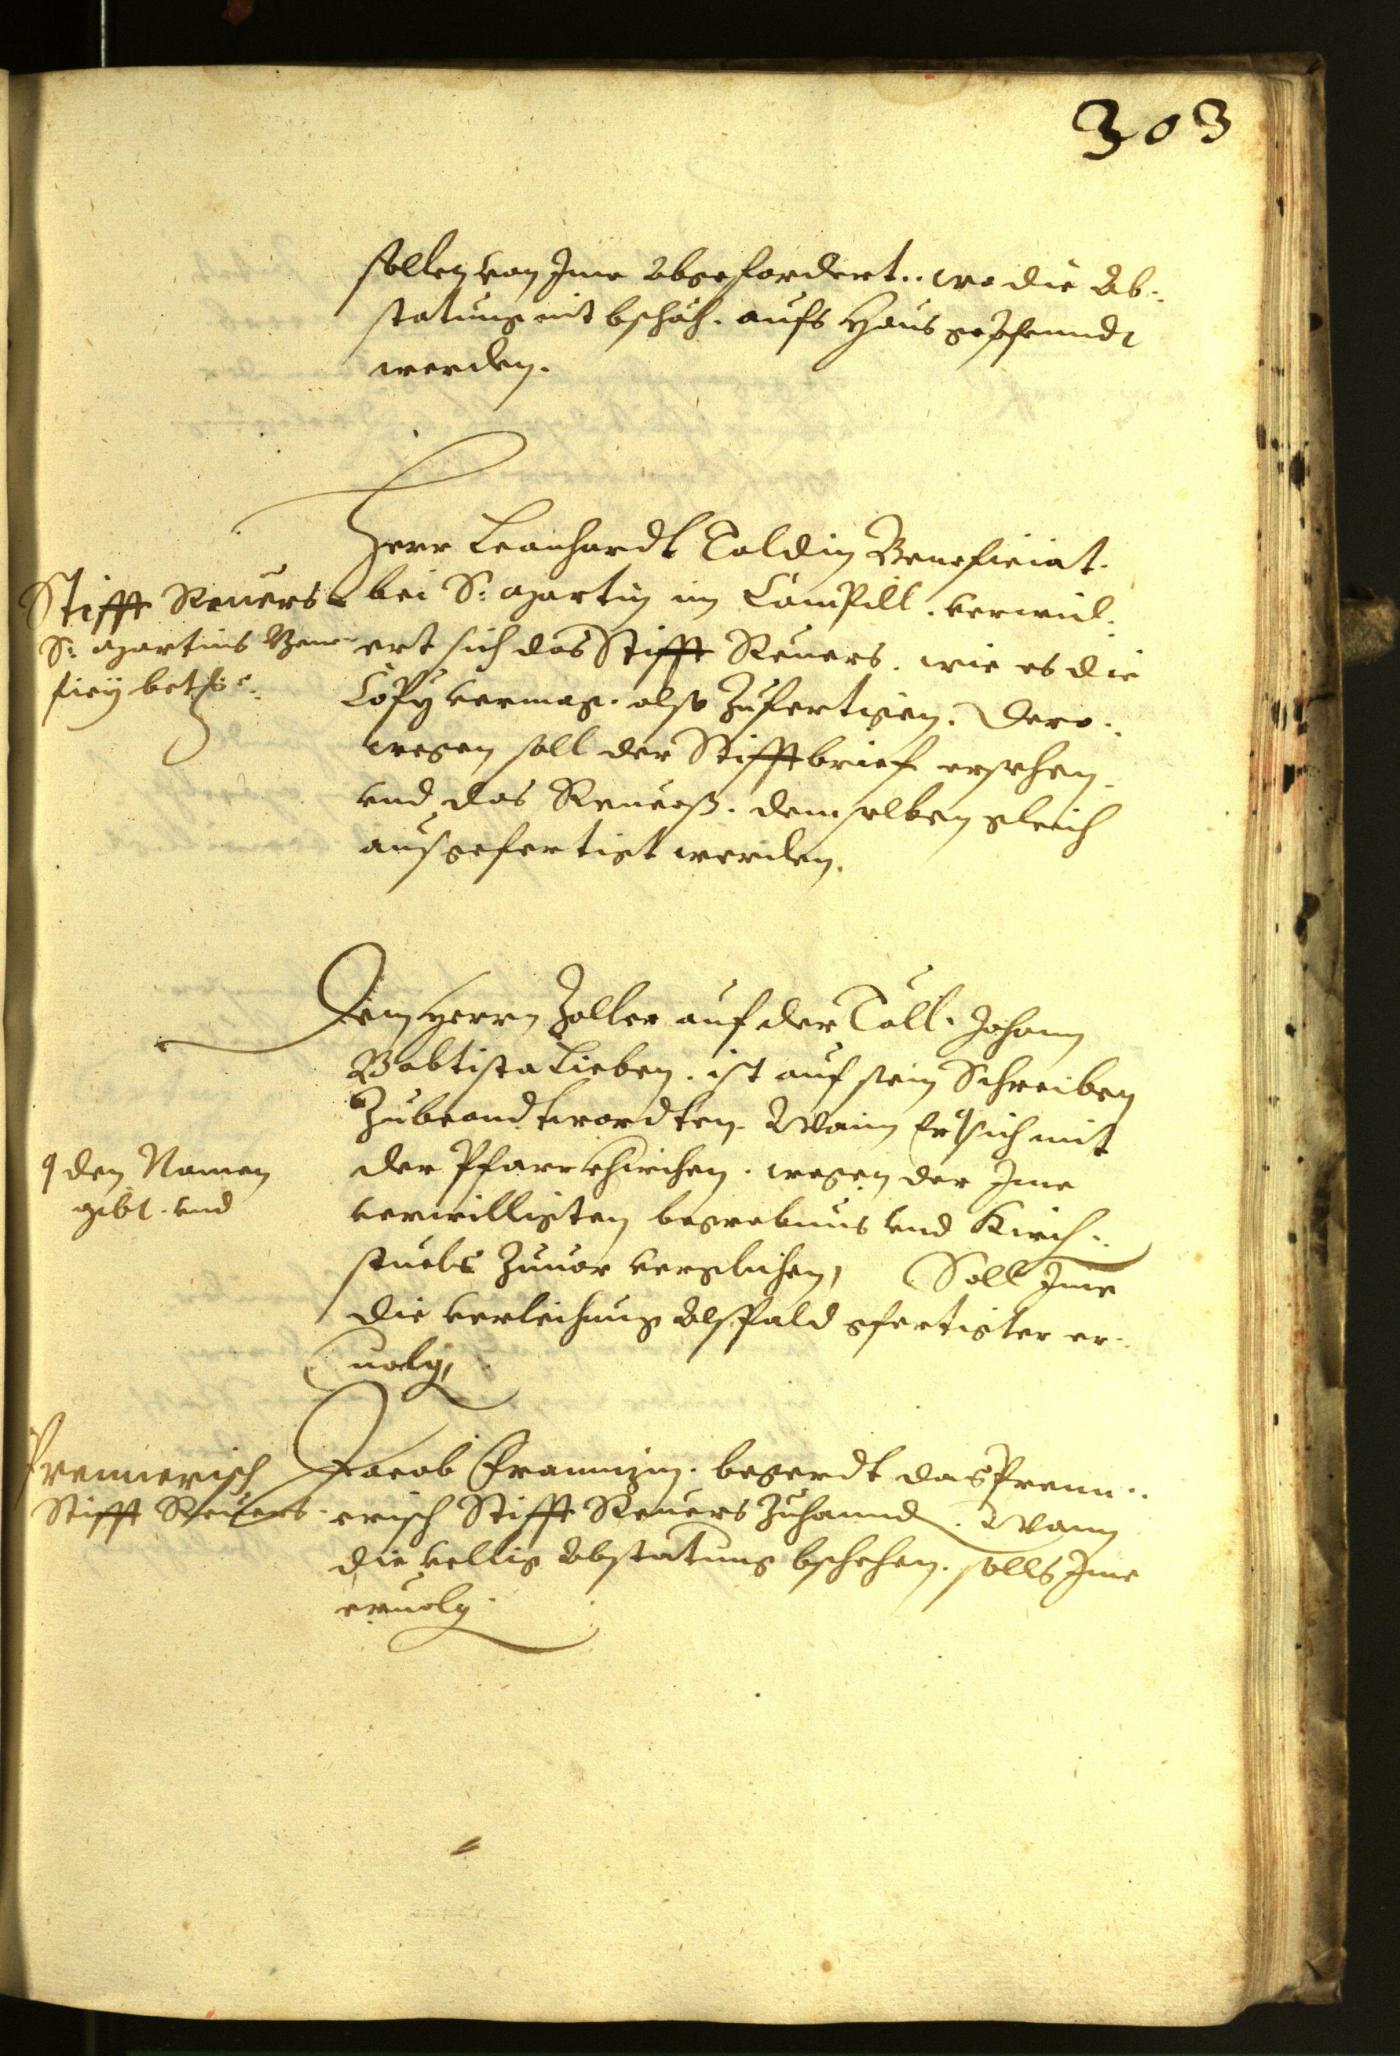 303
sollen von Ime abgefordert. wo die Ab-
statung nit bschäh. aufs Haus gepfenndt
werden.
Herr Leonhardt Toldin Beneficiat
bei S: Martin im Campill. verwid-
ert sich das Stifft Reuers. wie es die
Copÿ vermag. also Zufertigen. Dero-
wegen soll der Stifftbrief ersehen
vnd das Reuerß. demselben gleich
ausgefertigt werden.
Stifft Reuers
S: Martins Bene-
ficÿ betr:
Dem Herrn Zoller auf der Töll. Johann
Babtista Lieben. ist auf sein Schreiben
Zubeandtwordten. Wann Er sich mit
der Pfarrkhirchen. wegen der Ime
verwilligten begrebnus vnd Kirch-
stuels Zuuor verglichen, Soll Ime
die verleihung Alspald gfertigter er-
uolg,
den Namen
gibt. vnd
Jacob Frannzin. begerdt das Prenn-
erisch Stifft Reuers Zuhannd. Wann
die vellig Abstatung bschehen. solls Ime
eruolg.
Prennerisch
Stifft Reuers